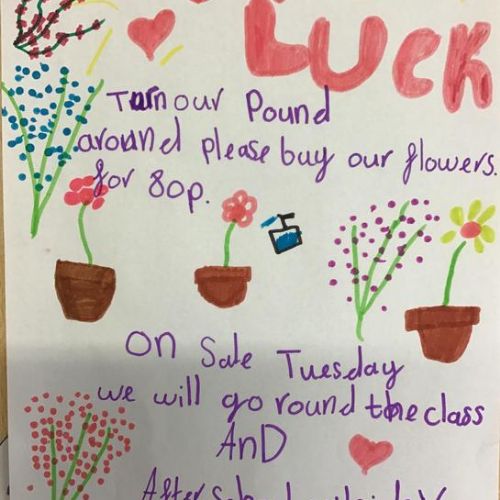 LUCK
Turn our Pound
around please buy our flowers.
for 80p.
On Sale Tuesday
we will go round the class
AnD
After